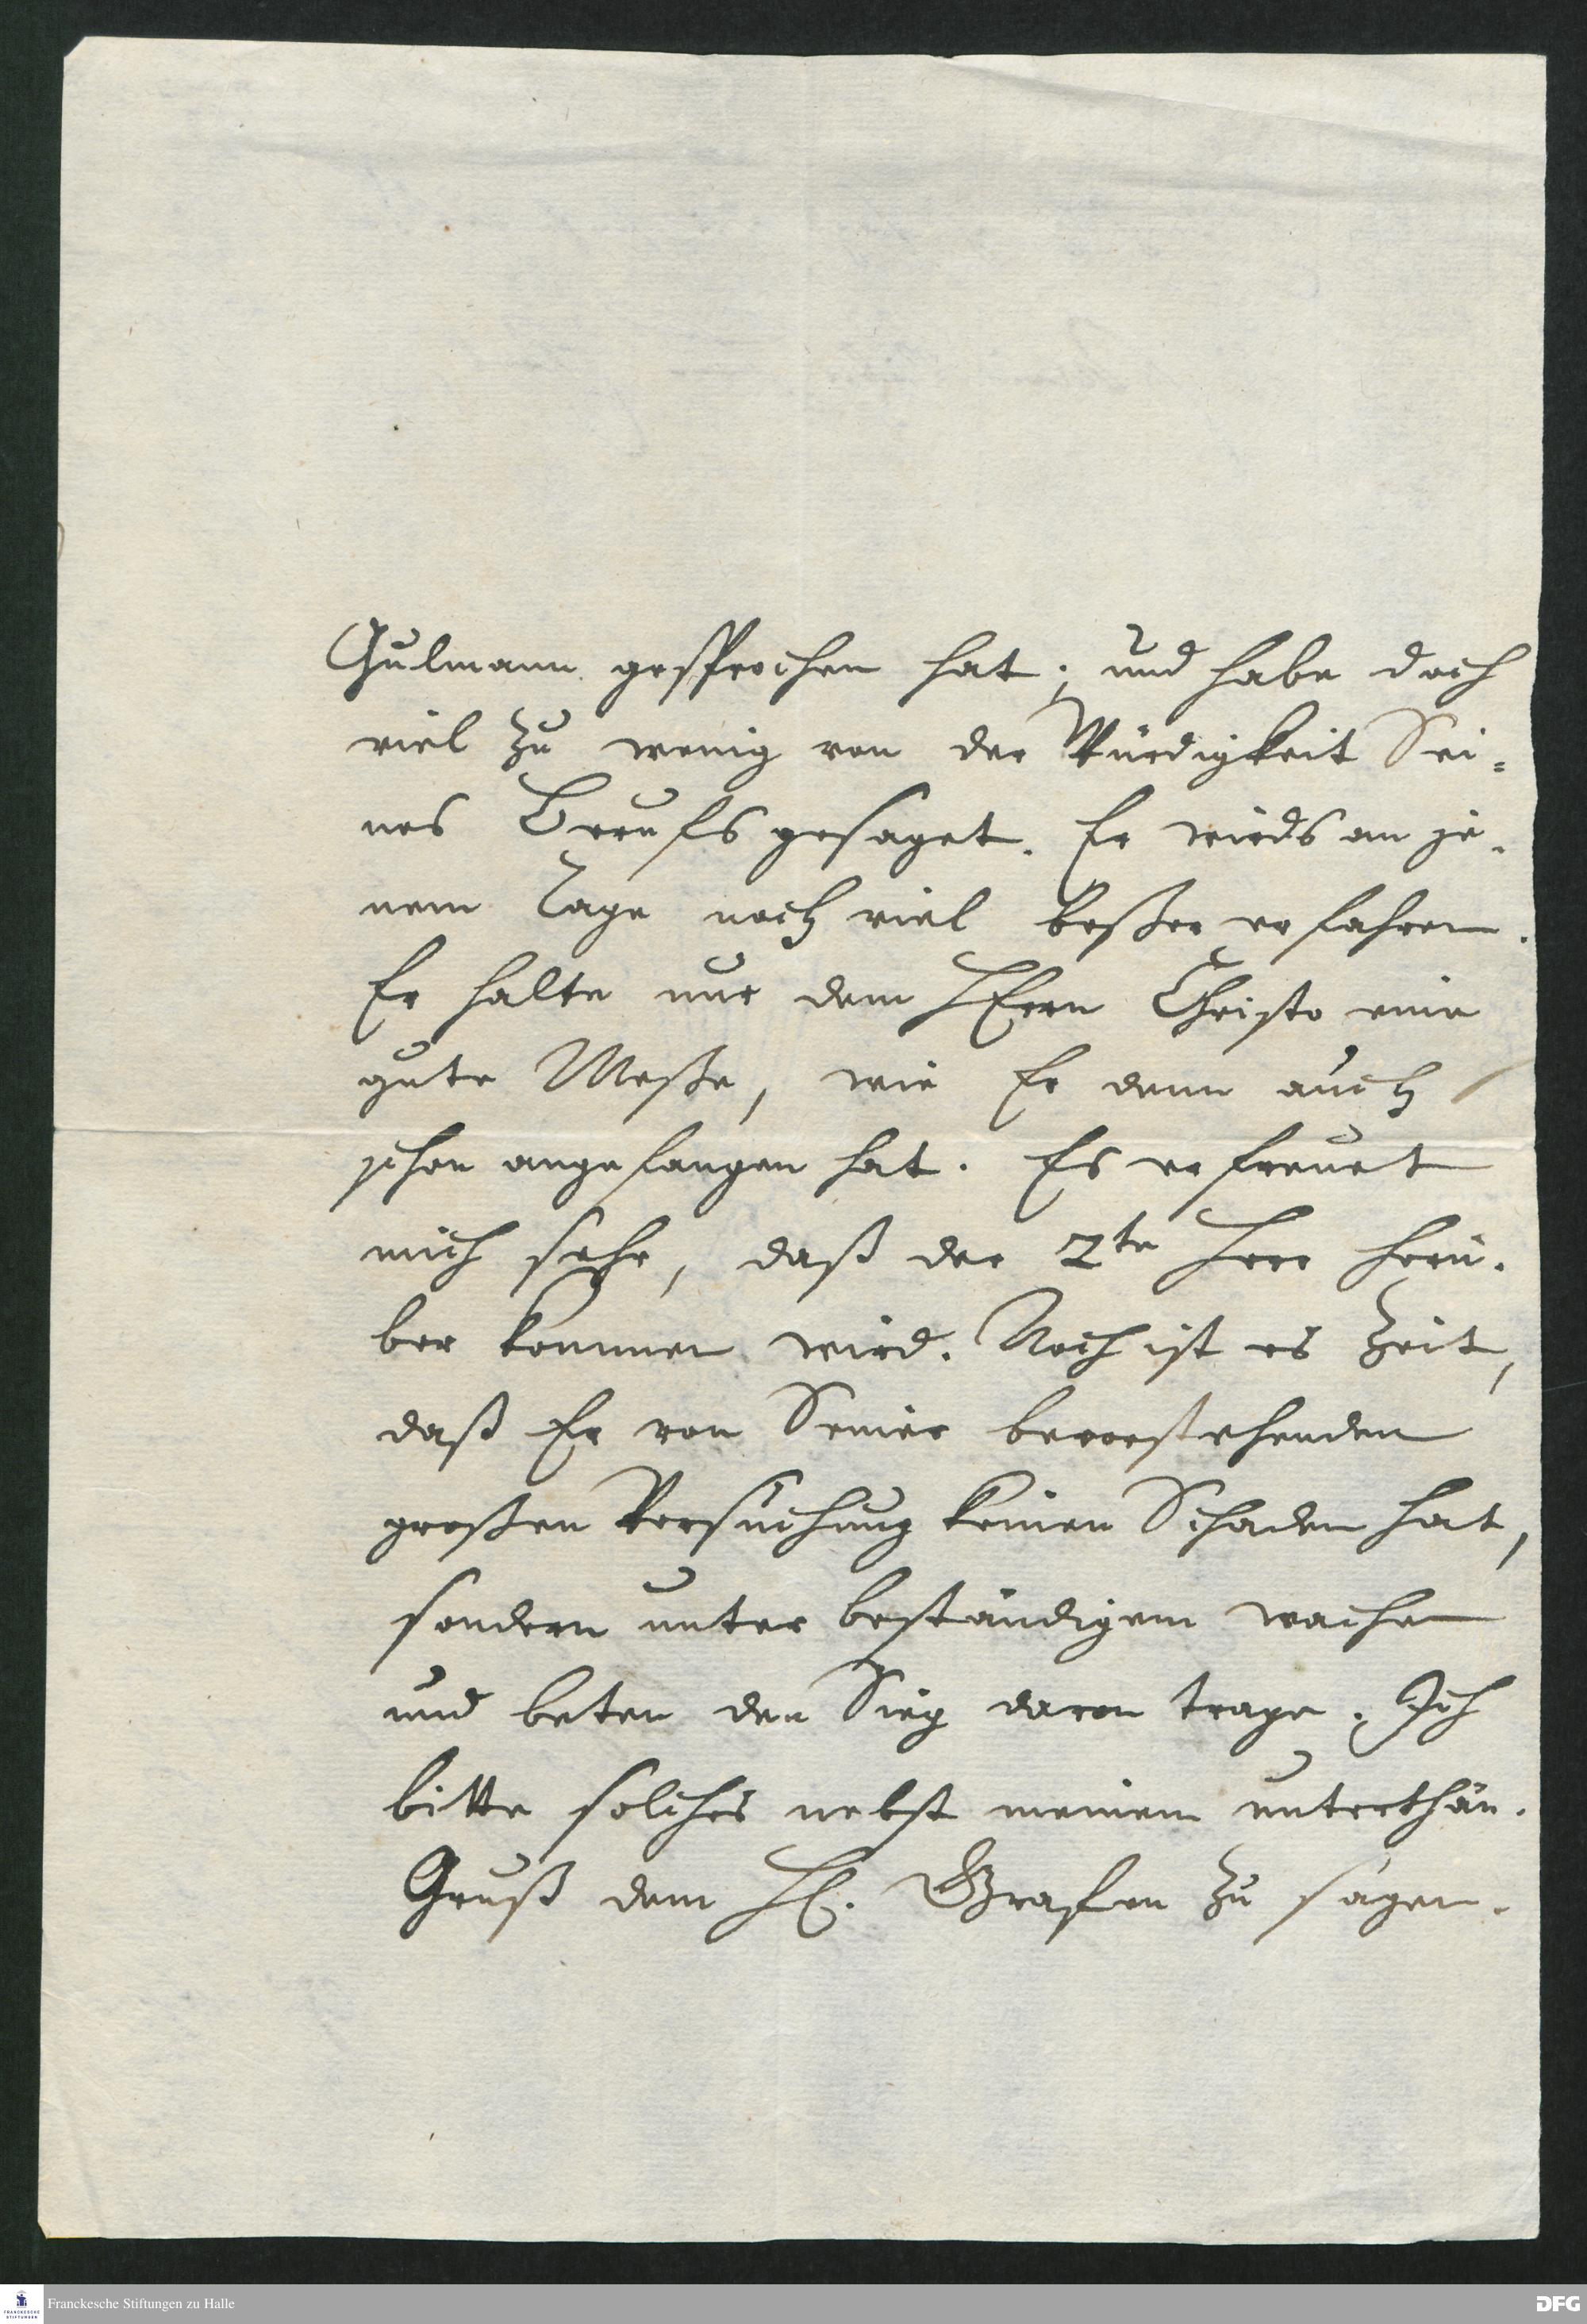 Gulmann gesprochen hat; und habe doch
viel zu wenig von der Würdigkeit Sei=
nes Berufs gesaget. Er wirds an je=
nem Tage noch viel beßer erfahren.
Er halte nur dem HErrn Christo eine
gute Meße, wie Er denn auch
schon angefangen hat. Es erfreuet
mich sehr, daß der 2te Herr herü=
ber kommen wird. Noch ist es Zeit,
daß Er von Seiner bevorstehenden
großen Versuchung keinen Schaden hat,
sondern unter beständigem wachen
und beten den Sieg davon trage. Ich
bitte solches nebst meinem unterthän.
Gruß dem H. Grafen zu sagen.
Franckesche Stiftungen zu Halle
DFG